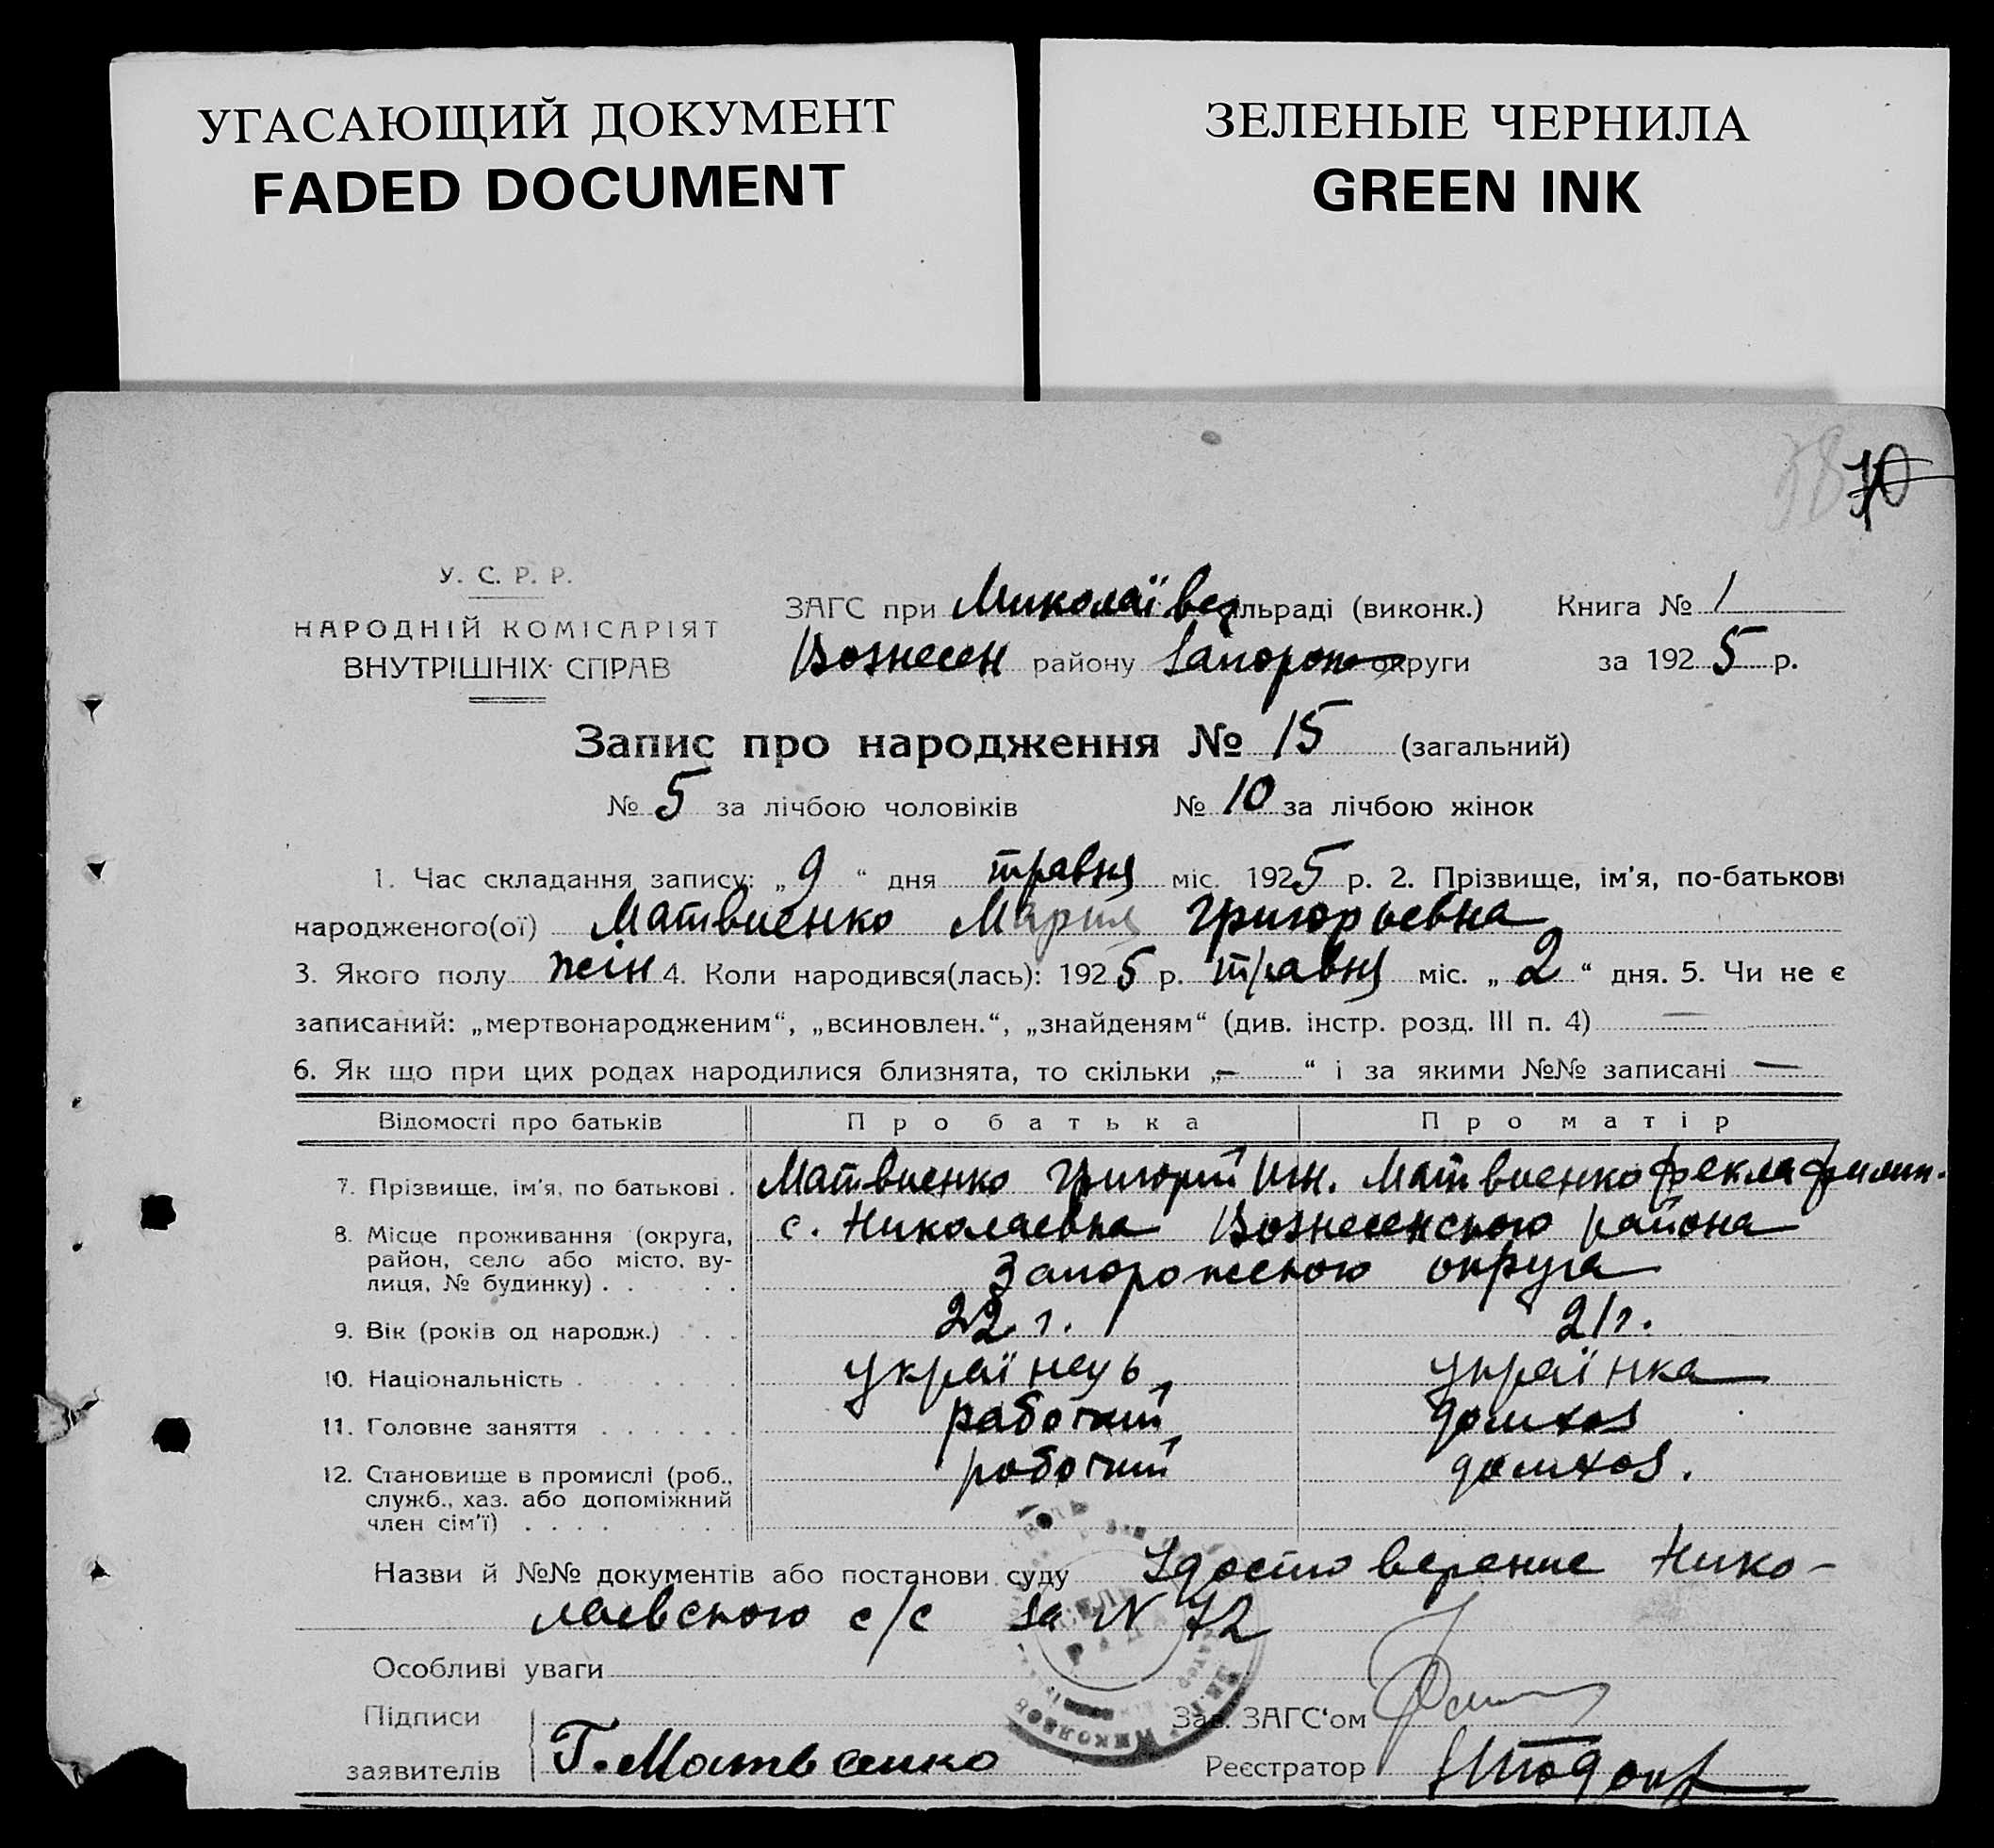 УГАСАЮЩИЙ ДОКУМЕНТ
FADED DOCUMENT
ЗЕЛЕНЫЕ ЧЕРНИЛА
GREEN INK
70
У. С. Р. Р.
НАРОДНІЙ КОМІСАРІЯТ
ВНУТРІШНІХ СПРАВ
ЗАГС при Миколаївс льраді (виконк.) Книга № 1
Вознесен району Запорож округи за 192 5 р.
Запис про народження № 15 (загальний)
№ 5 за лічбою чоловіків № 10 за лічбою жінок
1. Час складання запису: „ 9 “ дня травня міс. 192 5 р. 2. Прізвище, ім'я, по-батькові
народженого(ої) Матвиенко Мария Григорьевна
3. Якого полу жін 4. Коли народився(лась): 192 5 р. травня міс. „ 2 “ дня. 5. Чи не є
записаний: „мертвонародженим“, „всиновлен.“, „знайденям“ (див. інстр. розд. III п. 4) —
6. Як що при цих родах народилися близнята, то скільки „ — “ і за якими №№ записані —
Відомості про батьків Про батька Про матір
7. Прізвище, ім'я, по батькові . Матвиенко Григорий Игн. Матвиенко Фекла Филип.
8. Місце проживання (округа, с. Николаевка Вознесенского района
район, село або місто, ву-
лиця, № будинку) . . . . Запорожского округа
9. Вік (років од народж.) . . . 22 г. 21 г.
10. Національність . . . . українець українка
11. Головне заняття . . . . . . работчий домхоз
12. Становище в промислі (роб., роботчий домхоз.
служб., хаз. або допоміжний
член сім'ї) . . . .
Назви й №№ документів або постанови суду Удостоверение Нико-
лаевского с/с за N 72
Особливі уваги
Підписи Зав. ЗАГС‘ом
заявителів Г. Матвеенко Реєстратор